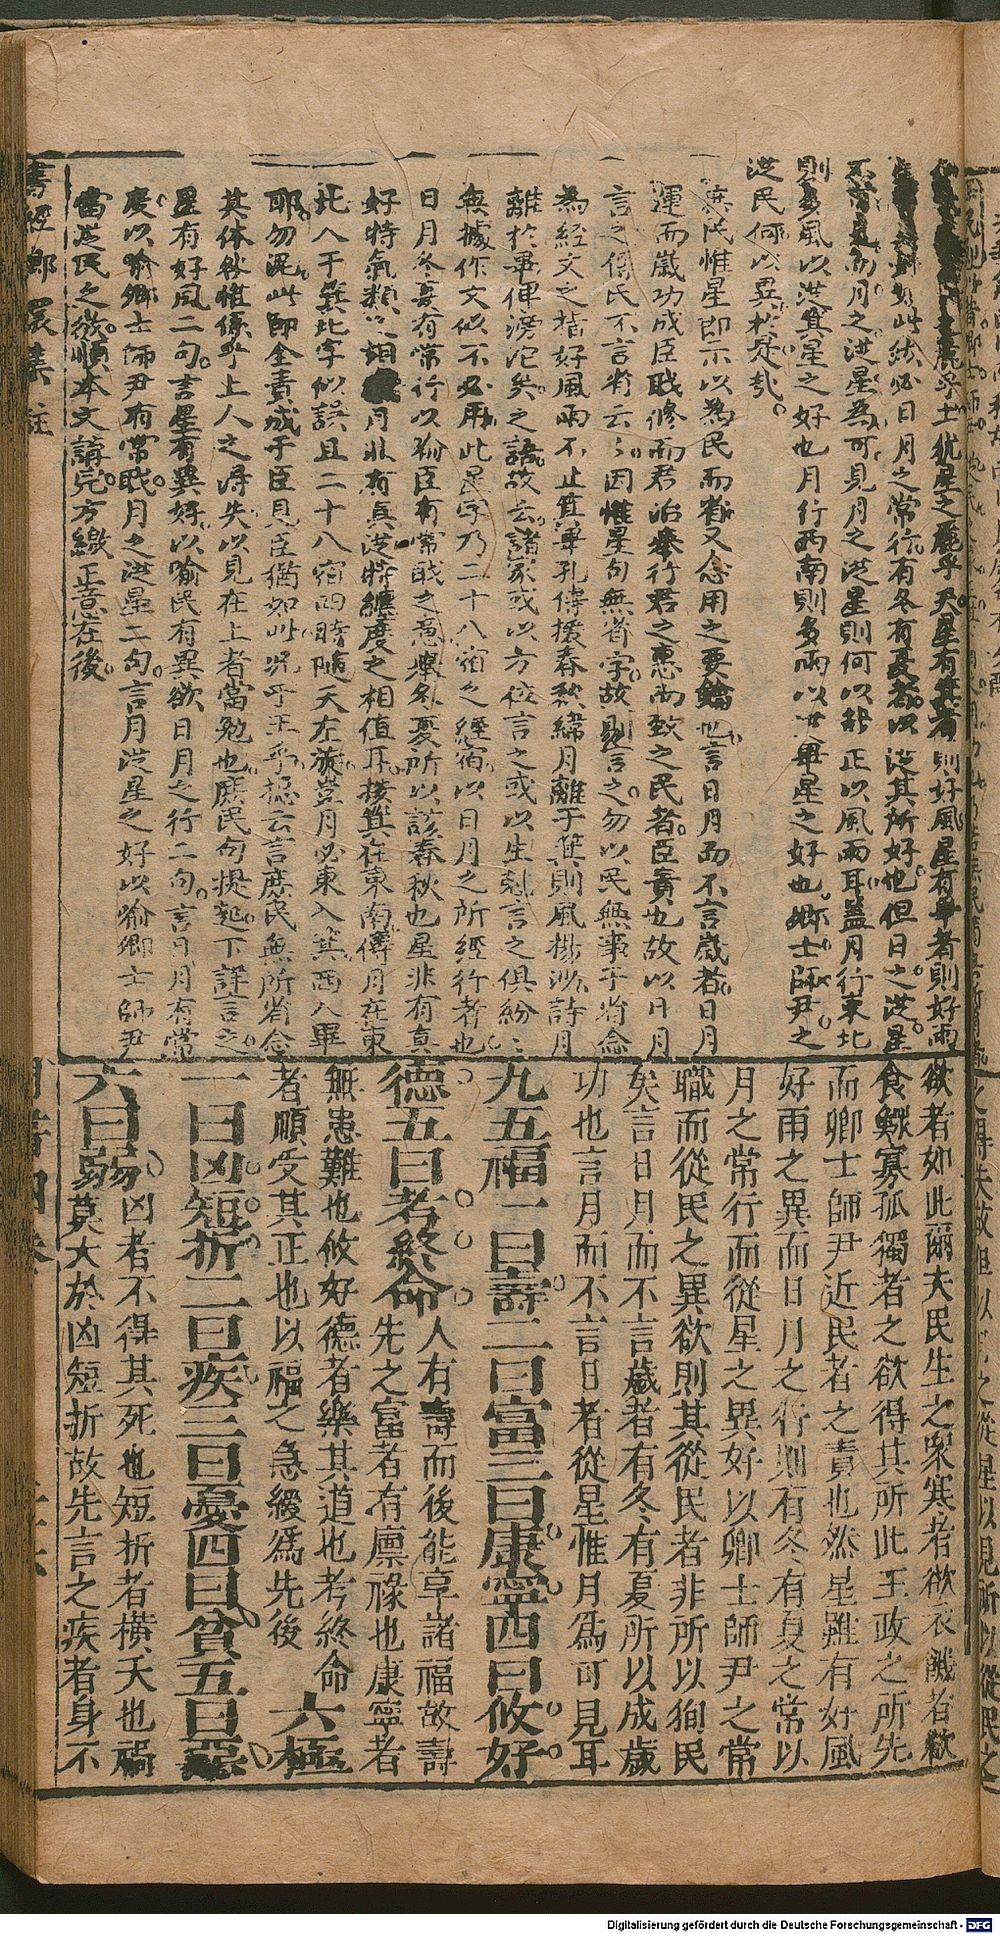 麗乎土猶星之麗乎天星有箕者則好風星有畢者則好雨
如此然必日月之常行有冬有夏者以從其所好也但日之從星
不可見而月之從星為可見月之從星則何以能正以風雨耳蓋月行東北
則多風以從箕星之好也月行西南則多雨以從畢星之好也卿士師尹之
從民何以異於是哉
庶民惟星即示以為民而省又念用之要論也言日月而不言歲者日月
運而歲功成臣職修而君治舉行君之惠而致之民者臣責也故以日月
言之係民不言省云云因惟星句無省字故則言之勿以民無事于省念
為經文之指好風雨不止箕畢孔傳援春秋緯月離于箕則風揚沙詩月
離於畢俾滂沱矣之語故云諸家或以方位言之或以生剋言之俱紛紛
無據作文似不必用此星字乃二十八宿之經宿以日月之所經行者也
日月冬夏有常行以喻臣有常職之意舉冬夏所以該春秋也星非有真
好特氣類之相月非有真從特纏度之相值耳按箕在東南傳月在東
北入于箕北字似誤且二十八宿四時隨天左旋豈月必東入箕西入畢
耶勿泥此節全責成于臣見臣猶如此况乎王乎總云言庶民無所省念
其体咎惟係乎上人之得失以見在上者當勉也庶民句提起下詳言之
星有好風二句言星有異好以喻民有異欲日月之行二句言日月有常
慶以喻卿士師尹有常職月之從星二句言月從星之好以喻卿士師尹
當從民之欲順本文講完方繳正意在後
欲者如此爾夫民生之眾寒者欲衣饑者欲
食鰥寡孤獨者之欲得其所此王政之所先
而卿士師尹近民者之責也然星雖有好風
好雨之異而日月之行則有冬有夏之常以
月之常行而從星之異好以卿士師尹之常
職而從民之異欲則其從民者非所以徇民
矣言日月而不言歲者有冬有夏所以成歲
功也言月而不言日者從星惟月為可見耳
九五福一曰壽二曰富三曰康寧四曰攸好
德五曰考終命人有壽而後能享諸福故壽
先之富者有廩祿也康寧者
無患難也攸好德者樂其道也考終命
者順受其正也以福之急緩為先後
六極
一曰凶短折二曰疾三曰憂四曰貧五曰惡
六曰弱凶者不得其死也短折者橫夭也禍
莫大於凶短折故先言之疾者身不
書經
周書四卷
Digitalisierung gefördert durch die Deutsche Forschungsgemeinschaft - DFG